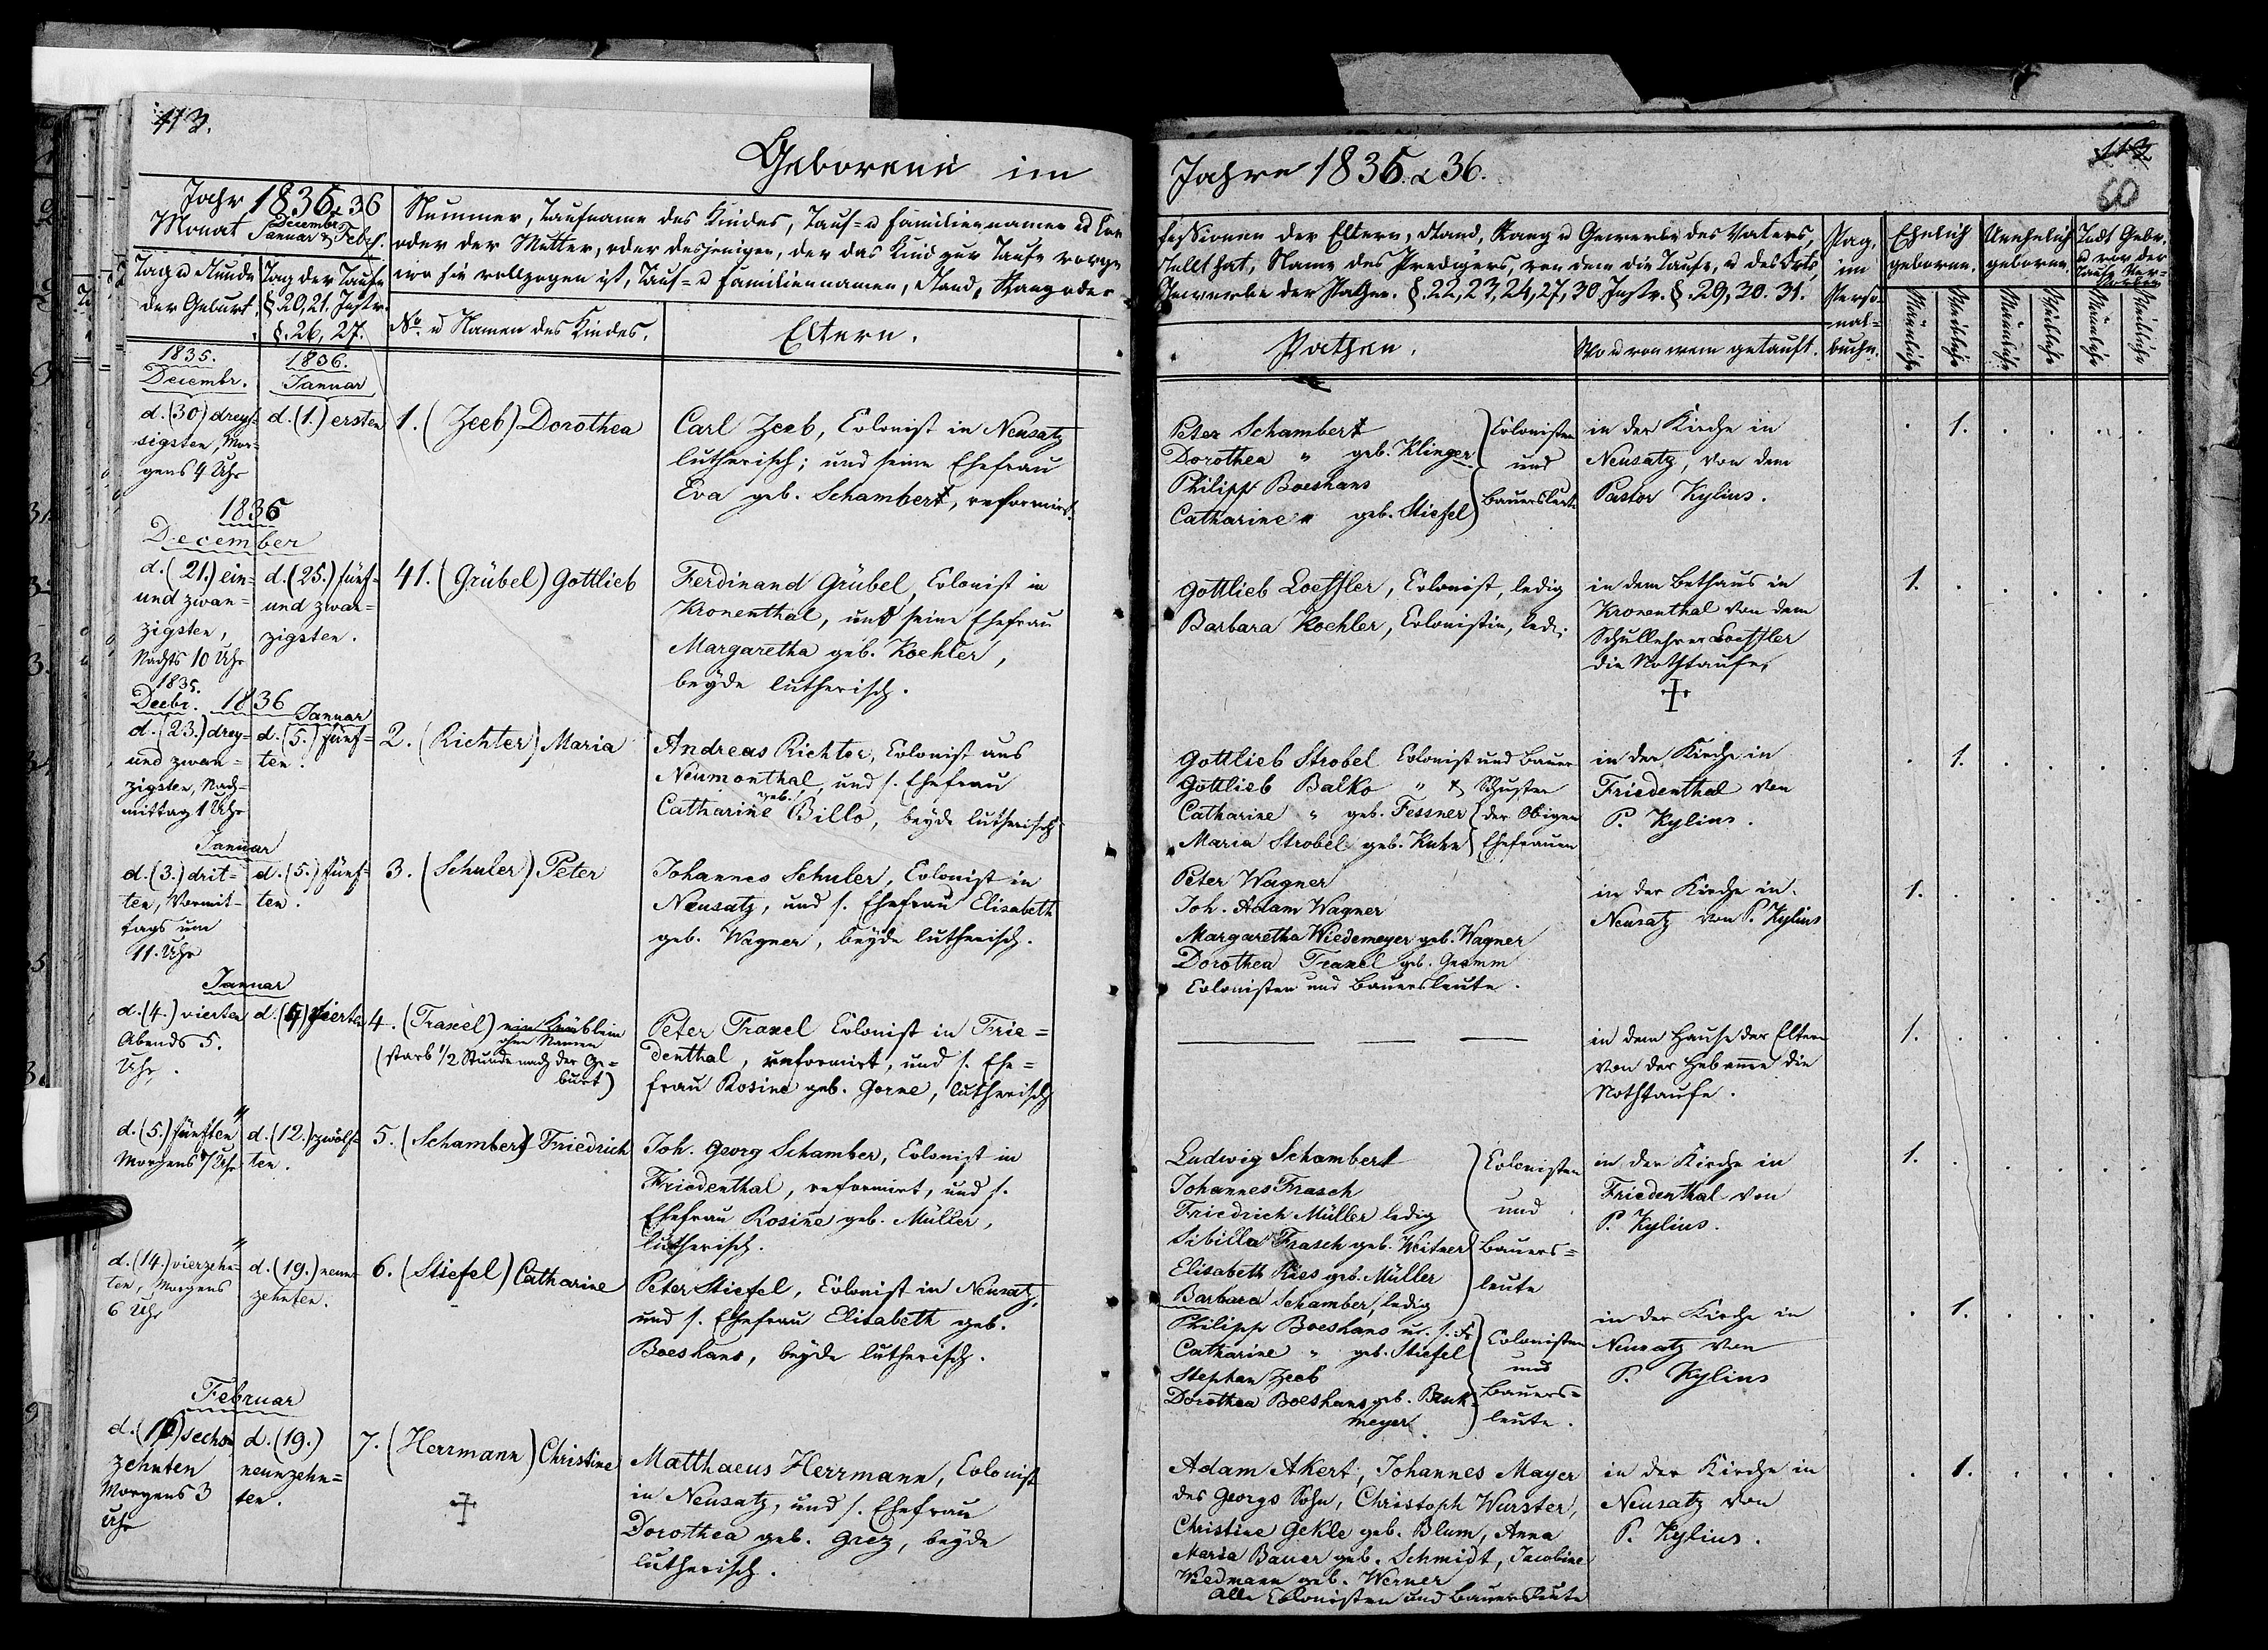 113.
Geborene im
Jahr 1835 & 36
Monat December Januar & Febr.
Nummer, Taufname des Kindes, Tauf- u Familiennamen u Con
oder der Mutter, oder desjenigen, der das Kind zur Taufe vorge
wo sie vollzogen ist, Tauf- u Familiennamen, Stand, Rang oder
Tag u Stunde
der Geburt.
Tag der Taufe
§. 20, 21. Instr.
§. 26, 27.
No. u Namen des Kindes.
Eltern.
1835.
Decembr.
1836.
Januar
d. (30) dreys-
sigsten, Mor-
gens 4 Uhr
d. (1.) ersten
1. (Zeeb) Dorothea
Carl Zeeb, Colonist in Neusatz
lutherisch; und seine Ehefrau
Eva geb. Schambert, reformirt.
1835
December
d. (21.) ein-
und zwan-
zigsten,
Nachts 10 Uhr
d. (25.) fünf-
und zwan-
zigsten.
41. (Grübel) Gottlieb
Ferdinand Grübel, Colonist in
Kronenthal, und seine Ehefrau
Margaretha geb. Koehler,
beyde lutherisch.
1835.
Decbr. 1836
Januar
d. (23.) drey-
und zwan-
zigsten, Nach-
mittag 1 Uhr
d. (5.) fünf-
ten.
2. (Richter) Maria
Andreas Richter, Colonist aus
Neumonthal, und s. Ehefrau
Catharine geb. Billo, beyde lutherisch
Januar
d. (3.) drit-
ten, Vormit-
tags um
11. Uhr
d. (5.) fünf-
ten.
3. (Schuler) Peter
Johannes Schuler, Colonist in
Neusatz, und s. Ehefrau Elisabeth
geb. Wagner, beyde lutherisch.
Januar
d. (4.) vierten
Abends 5.
Uhr.
d. (4) vierten
4. (Traxel) ein Knäblein
ohne Namen
(starb 1/2 Stunde nach der Ge-
burt)
Peter Traxel Colonist in Frie-
denthal, reformirt, und s. Ehe-
frau Rosine geb. Gorne, lutherisch
"
d. (5.) fünften
Morgens 7 Uhr
d. (12.) zwölf-
ten.
5. (Schambert) Friedrich
Joh. Georg Schamber, Colonist in
Friedenthal, reformirt, und s.
Ehefrau Rosine geb. Müller,
lutherisch.
"
d. (14.) vierzehn-
ten, Morgens
6 Uhr
d. (19.) neun-
zehnten.
6. (Stiefel) Catharine
Peter Stiefel, Colonist in Neusatz,
und s. Ehefrau Elisabeth geb.
Boeshans, beyde lutherisch.
Februar
d. (16) sechs-
zehnten
Morgens 3
Uhr
d. (19.)
neunzehn-
ten.
7. (Herrmann) Christine
Matthaeus Herrmann, Colonist
in Neusatz, und s. Ehefrau
Dorothea geb. Grez, beyde
lutherisch.
Jahre 1835 & 36.
113
60
fessionen der Eltern, Stand, Rang u Gewerbe des Vaters,
stellt hat, Name des Predigers, von dem die Taufe, u des Orts,
Gewerbe der Pathen. §. 22, 23, 24, 27, 30. Instr. §. 29, 30. 31.
Pathen.
Wo u von wem getauft.
Pag.
im
Perso-
nal-
buche.
Ehelich
geborne.
Unehelich
geborne.
Todt Gebr.
u vor der
Taufe Ver-
storben
Männliche
Weibliche
Männliche
Weibliche
Männliche
Weibliche
Peter Schambert
Dorothea " geb. Klinger
Philipp Boeshans
Catharine " geb. Stiefel
Colonisten
und
Bauersleute
in der Kirche in
Neusatz, von dem
Pastor Kylius.
1.
Gottlieb Loeffler, Colonist, ledig
Barbara Koehler, Colonistin, led:
in dem Bethaus in
Kronenthal von dem
Schullehrer Loeffler
die Nothtaufe,
1.
Gottlieb Strobel Colonist und Bauer
Gottlieb Balko " & Schuster
Catharine " geb. Fessner der Obigen
Maria Strobel geb. Kuhn Ehefrauen
in der Kirche in
Friedenthal von
P. Kylius.
1.
Peter Wagner
Joh. Adam Wagner
Margaretha Wiedemeyer geb. Wagner
Dorothea Traxel geb. Gramm
Colonisten und Bauersleute.
in der Kirche in
Neusatz von P. Kylius
1.
in dem Hause der Eltern
von der Hebamme die
Nothtaufe.
1.
Ludwig Schambert
Johannes Frasch
Friedrich Müller ledig
Sibilla Frasch geb. Weitner
Elisabeth Ries geb. Müller
Barbara Schamber, ledig
Colonisten
und
Bauers-
leute
in der Kirche in
Friedenthal von
P. Kylius.
1.
Philipp Boeshans u. s. Fr
Catharine " geb. Stiefel
Stephan Zeeb
Dorothea Boeshans geb. Beck-
meyer
Colonisten
und
Bauers-
leute.
in der Kirche in
Neusatz von
P. Kylius
1.
Adam Akert, Johannes Mayer
des Georgs Sohn, Christoph Wurster,
Christine Gekle geb. Blum, Anna
Maria Bauer geb. Schmidt, Jacobine
Wiedmann geb. Werner
Alle Colonisten und Bauersleute
in der Kirche in
Neusatz von
P. Kylius.
1.